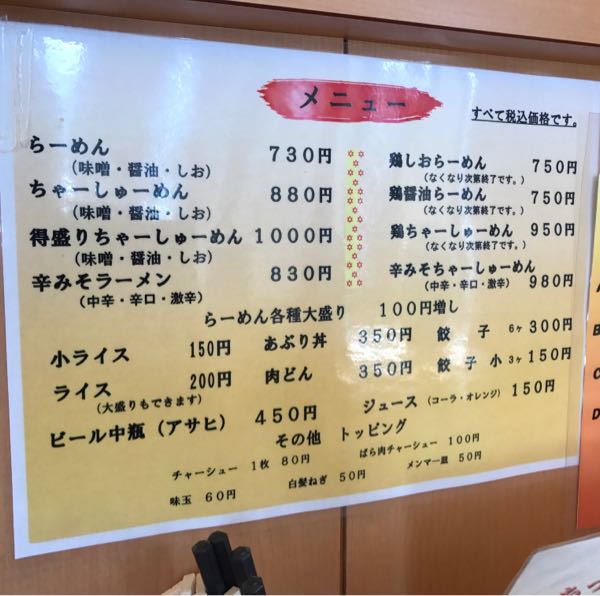 メニュー
すべて税込価格です。
らーめん 730円
(味噌・醤油・しお)
ちゃーしゅーめん 880円
(味噌・醤油・しお)
得盛りちゃーしゅーめん 1000円
(味噌・醤油・しお)
辛みそラーメン 830円
(中辛・辛口・激辛)
鶏しおらーめん 750円
(なくなり次第終了です。)
鶏醤油らーめん 750円
(なくなり次第終了です。)
鶏ちゃーしゅーめん 950円
(なくなり次第終了です。)
辛みそちゃーしゅーめん
(中辛・辛口・激辛) 980円
らーめん各種大盛り 100円増し
小ライス 150円 あぶり丼 350円 餃子 6ヶ 300円
ライス 200円 肉どん 350円 餃子小 3ヶ 150円
(大盛りもできます)
ビール中瓶(アサヒ) 450円 ジュース (コーラ・オレンジ) 150円
その他 トッピング
チャーシュー 1枚 80円 ばら肉チャーシュー 100円
味玉 60円 白髪ねぎ 50円 メンマ一皿 50円
B
C
D